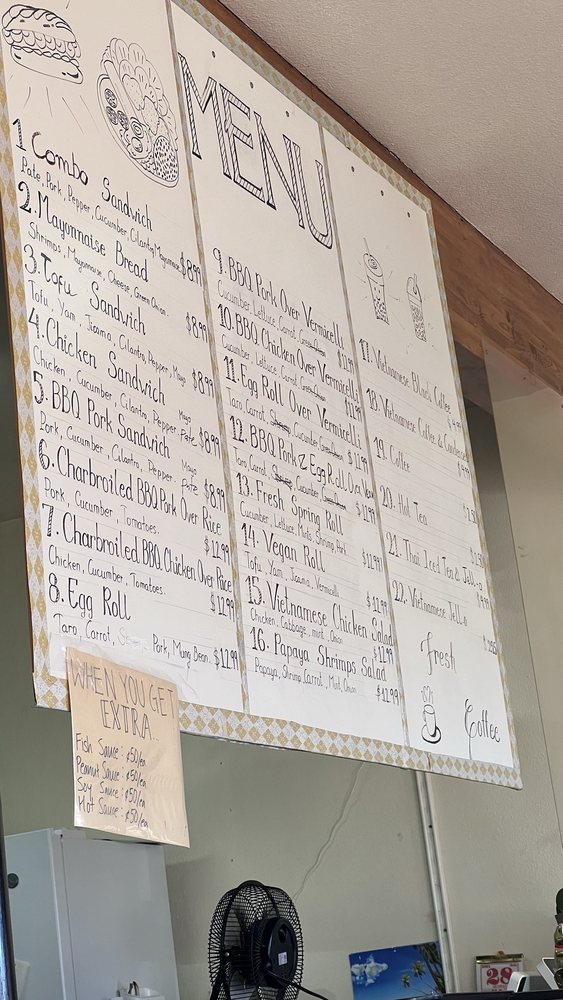 MENU
1 Combo Sandwich
Pate, Pork, Pepper, Cucumber, Cilantro, Mayonnaise $8.99
2. Mayonnaise Bread
Shrimps, Mayonnaise, Cheese, Green Onion. $8.99
3. Tofu Sandwich
Tofu, Yam, Jicama, Cilantro, Pepper, Mayo $8.99
4. Chicken Sandwich
Chicken, Cucumber, Cilantro, Pepper, Pate Mayo $8.99
5. BBQ Pork Sandwich
Pork, Cucumber, Cilantro, Pepper. Pate Mayo $8.99
6. Charbroiled BBQ Pork Over Rice
Pork, Cucumber, Tomatoes. $12.99
7. Charbroiled BBQ Chicken Over Rice
Chicken, Cucumber, Tomatoes. $12.99
8. Egg Roll
Taro, Carrot, Pork, Mung Bean. $12.99
9. BBQ Pork Over Vermicelli
Cucumber, Lettuce, Carrot, Green Onion
10. BBQ Chicken Over Vermicelli
Cucumber, Lettuce, Carrot,
11. Egg Roll Over Vermicelli
Taro, Carrot, Cucumber
12. BBQ Pork & Egg Roll Over
Taro, Carrot, Cucumber
13. Fresh Spring Roll
Cucumber, Lettuce, Mint, Shrimp,
14. Vegan Roll
Tofu, Yam, Jicama, Vermicelli $12.99
15. Vietnamese Chicken Salad
Chicken, Cabbage, mint, Onion $12.99
16. Papaya Shrimps Salad
Papaya, Shrimp, Carrot, Mint, Onion $12.99
17. Vietnamese Black Coffee
18. Vietnamese Coffee & Condensed
19. Coffee
20. Hot Tea
21. Thai Iced Tea & Jell-o
22. Vietnamese Jell-o
Fresh
Coffee
WHEN YOU GET
EXTRA...
Fish Sauce: ¢50/ea
Peanut Sauce: ¢50/ea
Soy Sauce: ¢50/ea
Hot Sauce: ¢50/ea
28